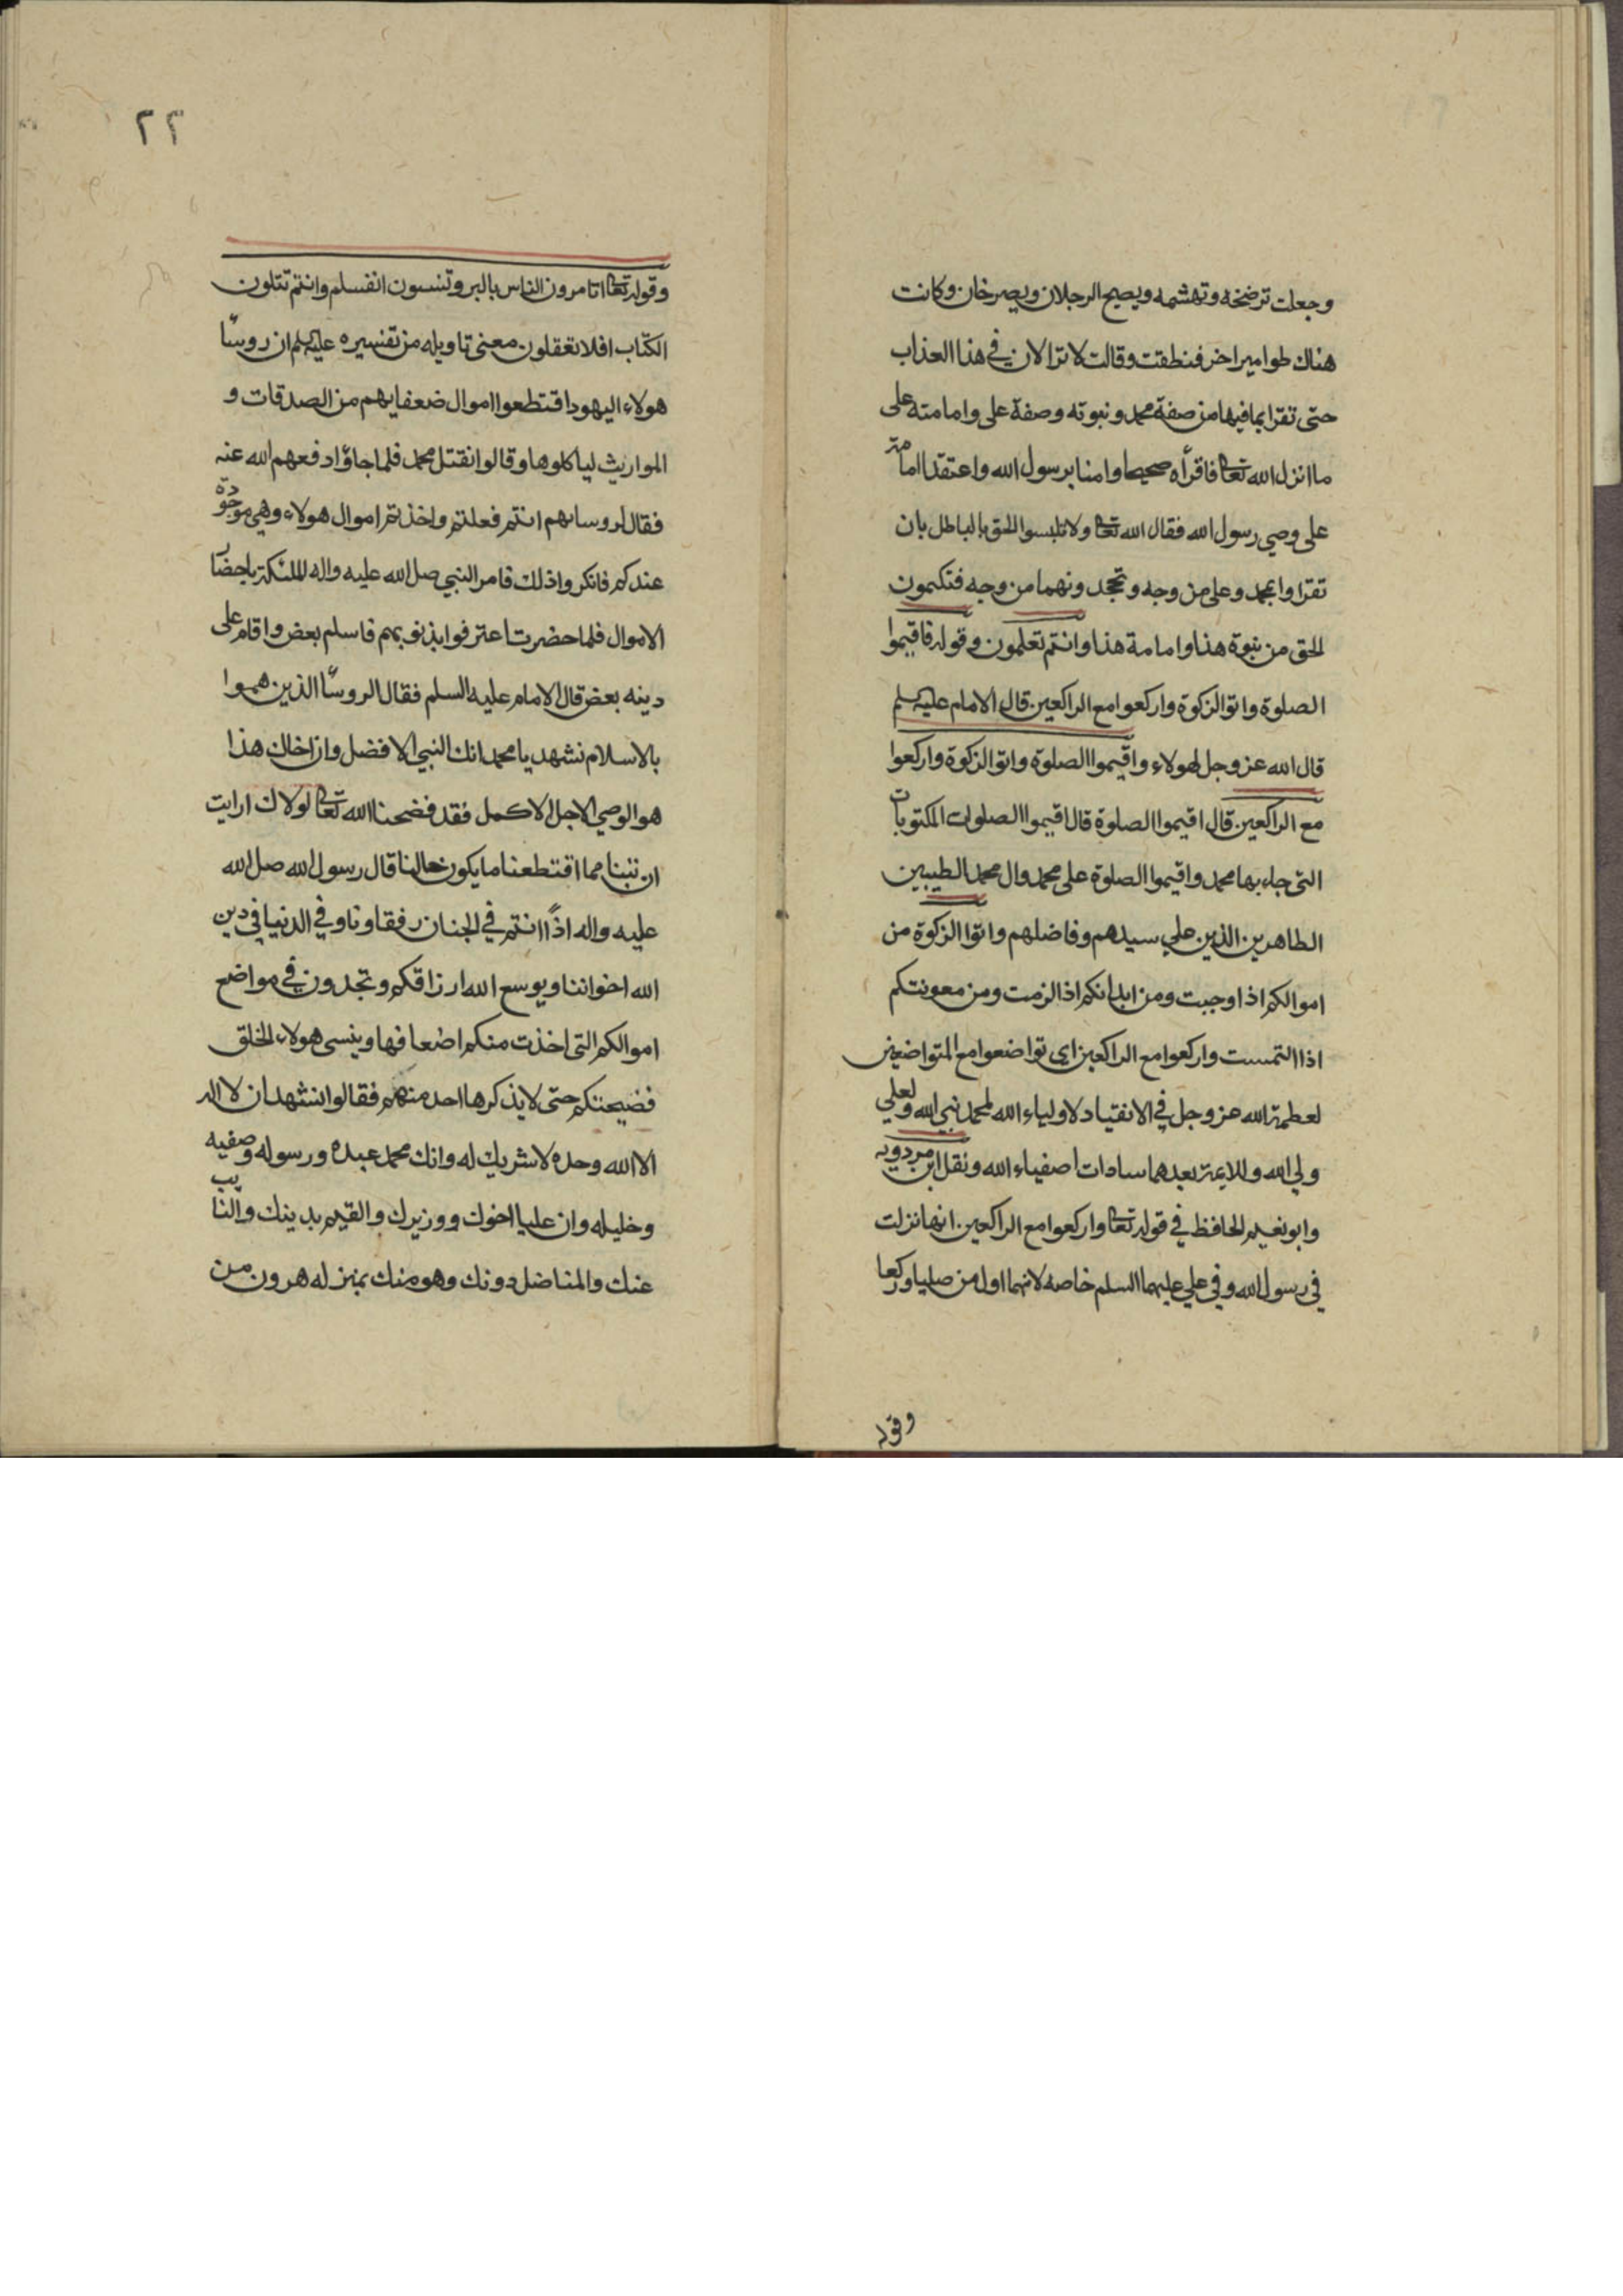 وجعلت ترضخه وتهشمه ويصيح الرجلان ويصرخان وكانت
هناك طوامير اخر فنطقت وقالت لا تزالان في هذا العذاب
حتى تقرا بما فيها من صفة محمد ونبوته وصفة علي وامامته على
ما انزل الله تعالى فاقرأه صحيحا وامنا برسول الله واعتقدا امامته
علي وصي رسول الله فقال الله تعالى ولا تلبسوا الحق بالباطل بان
تقروا بمحمد وعلي من وجه وتجحدونهما من وجه فتكتمون
الحق من نبوة هذا وامامة هذا وانتم تعلمون وقوله فاقيموا
الصلوة واتو الزكوة واركعوا مع الراكعين قال الامام عليه السلم
قال الله عز وجل لهولاء واقيموا الصلوة واتو الزكوة واركعوا
مع الراكعين قال اقيموا الصلوة قال اقيموا الصلوات المكتوبات
التى جاء بها محمد واقيموا الصلوة على محمد وال محمد الطيبين
الطاهرين الذين علي سيدهم وفاضلهم واتوا الزكوة من
اموالكم اذا وجبت ومن ابدانكم اذا لزمت ومن معونتكم
اذا التمست واركعوا مع الراكعين اي تواضعوا مع المتواضعين
لعظمة الله عز وجل في الانقياد لاولياء الله لمحمد نبي الله ولعلي
ولي الله وللايمة بعدهما سادات اصفياء الله ونقل ابن مردويه
وابو نعيم الحافظ في قوله تعالى واركعوا مع الراكعين انها نزلت
في رسول الله وفي علي عليهما السلم خاصه لانهما اول من صليا وركعا
وقوله
٢٢
وقوله تعالى اتامرون الناس بالبر وتنسون انفسكم وانتم تتلون
الكتاب افلا تعقلون معنى تاويله من تفسيره عليه السلم ان روسآ
هولاء اليهود اقتطعوا اموال ضعفايهم من الصدقات و
المواريث لياكلوها وقالوا نقتل محمد فلما جاؤا دفعهم الله عنه
فقال لروسايهم انتم فعلتم واخذتم اموال هولاء وهي موجودة
عندكم فانكروا ذلك فامر النبي صل الله عليه واله الملئكة باحضار
الاموال فلما حضرت اعترفوا بذنوبهم فاسلم بعض واقام على
دينه بعض قال الامام عليه السلم فقال الروسآ الذين هموا
بالاسلام نشهد يا محمد انك النبي الافضل وان اخاك هذا
هو الوصي الاجل الاكمل فقد فضحنا الله تعالى لولاك ارايت
ان تبنا مما اقتطعنا ما يكون حالنا قال رسول الله صل الله
عليه واله اذًا انتم في الجنان رفقاونا وفي الدنيا في دين
الله اخواننا ويوسع الله ارزاقكم وتجدون في مواضع
اموالكم التي اخذت منكم اضعافها وينسى هولاء الخلق
فضيحتكم حتى لا يذكرها احد منهم فقالوا نشهد ان لا اله
الا الله وحده لا شريك له وانك محمد عبده ورسوله وصفيه
وخليله وان عليا اخوك ووزيرك والقيم بدينك والنايب
عنك والمناضل دونك وهو منك بمنزله هرون من